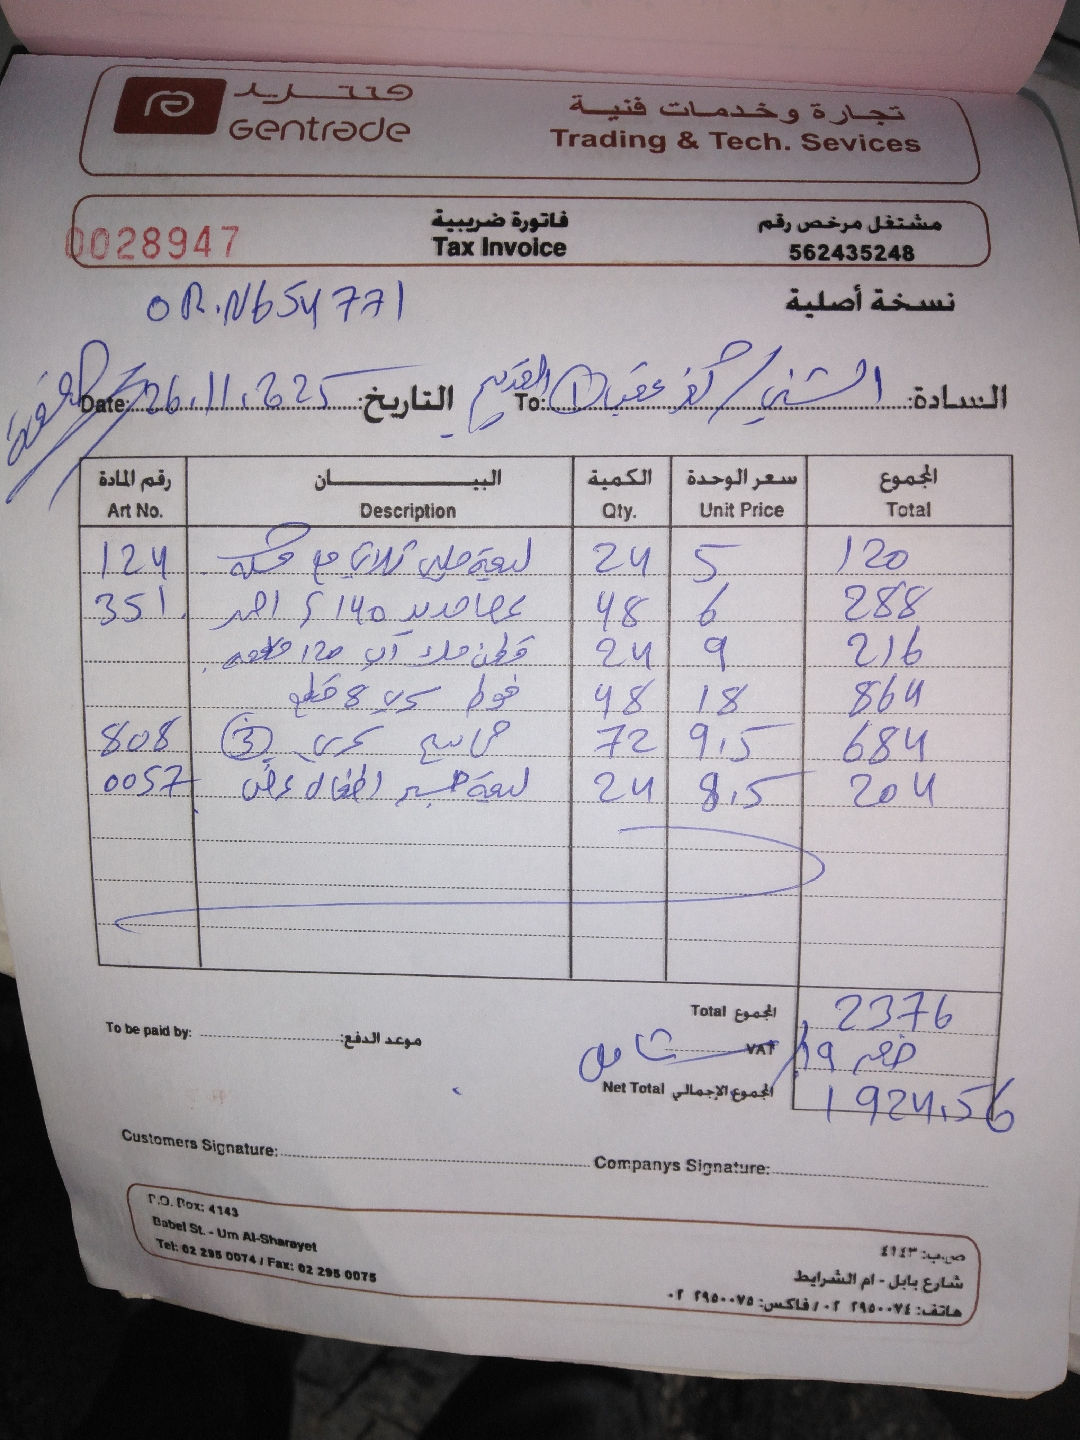 جنتريد
Gentrade
تجارة وخدمات فنية
Trading & Tech. Sevices
0028947
فاتورة ضريبية
Tax Invoice
مشتغل مرخص رقم
562435248
OR.N654771
نسخة أصلية
السادة: الشني / كفر عقب ① القديم To:
التاريخ: 26.11.2025 Date:
رقم المادة البيــــــان الكمية سعر الوحدة المجموع
Art No. Description Qty. Unit Price Total
124 ليفة جلي ثلاثي مع 24 5 120
351 عصا حديد 140 احمر 48 6 288
24 9 216
فوط 8 قطع 48 18 864
808 ③ 72 9.5 684
0057 ليفة اطفال 24 8.5 204
المجموع Total 2376
شامل VAT خصم 19
المجموع الإجمالي Net Total 1924.56
To be paid by: موعد الدفع:
Customers Signature: Companys Signature:
P.O. Box: 4143
Babel St. - Um Al-Sharayet
Tel: 02 295 0074 / Fax: 02 295 0075
ص.ب: ٤١٤٣
شارع بابل - ام الشرايط
هاتف: ٠٢ ٢٩٥٠٠٧٤ / فاكس: ٠٢ ٢٩٥٠٠٧٥